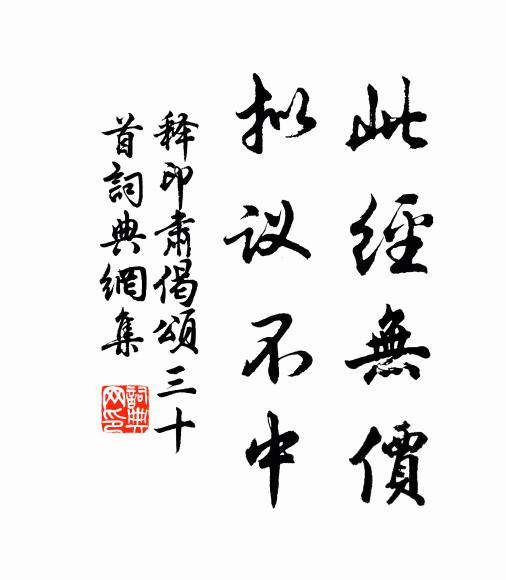 此經無價
拟议不中
释印肃偈頌三十
首詞典網集
詞典网印